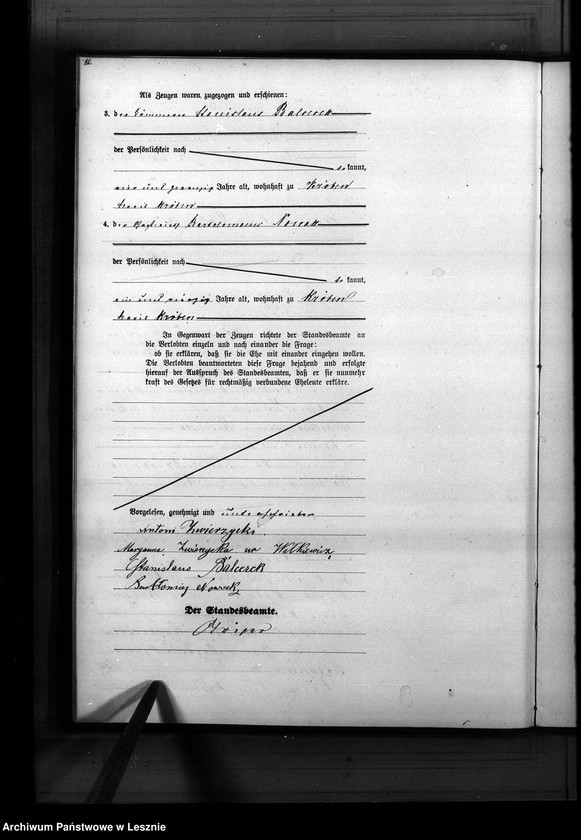 Als Zeugen waren zugezogen und erschienen:
3. der Stanislaus
der Persönlichkeit nach
be kannt,
Jahre alt, wohnhaft zu Kröben
Kreis Kröben
4. der Bartholomaeus Nowak
der Persönlichkeit nach
be kannt,
ein und vierzig Jahre alt, wohnhaft zu Kröben
Kreis Kröben
In Gegenwart der Zeugen richtete der Standesbeamte an
die Verlobten einzeln und nach einander die Frage:
ob sie erklären, daß sie die Ehe mit einander eingehen wollen.
Die Verlobten beantworteten diese Frage bejahend und erfolgte
hierauf der Ausspruch des Standesbeamten, daß er sie nunmehr
kraft des Gesetzes für rechtmäßig verbundene Eheleute erkläre.
Vorgelesen, genehmigt und unterschrieben
Antoni Zwierzycki
Maryanna Zwierzycka Witkiewicz
Stanislaus Balcerek
Nowak
Der Standesbeamte.
Archiwum Państwowe w Lesznie